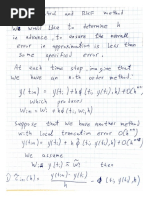 method and RKF method
We would like to determine h
in advance, to ensure the overall
error in approximation is less than
some specified error.
At each time step, imagine that
we have an n-th order method
y(t_{i+1}) = y(t_i) + hϕ(t_i, y(t_i), h) + O(h^{n+1})
which produces
w_{i+1} = w_i + hϕ(t_i, w_i, h)
Suppose that we have another method
with local truncation error O(h^{n+1})
y(t_{i+1}) = y(t_i) + h (t_i, y(t_i), h) + O(h^{n+2})
we assume
w_i ≈ y(t_i) ≈ w̃_i then
1) τ_{i+1}(h) = y(t_{i+1}) - y(t_i) / h - ϕ(t_i, y(t_i), h)